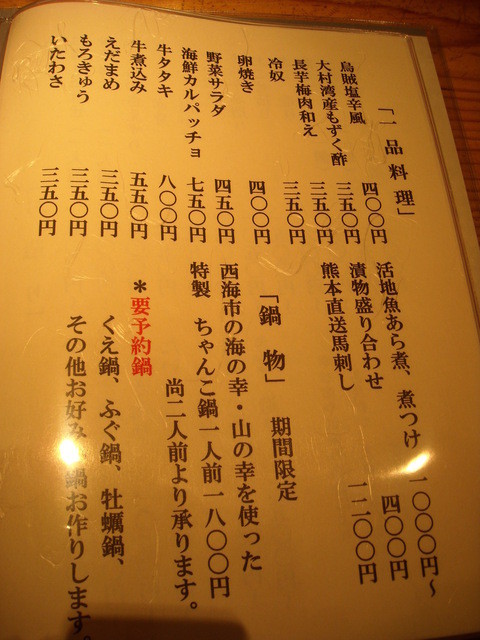 「一品料理」
烏賊塩辛風 四〇〇円
大村湾産もずく酢 三五〇円
長芋梅肉和え 三五〇円
冷奴 三五〇円
卵焼き 四〇〇円
野菜サラダ 四五〇円
海鮮カルパッチョ 七五〇円
牛タタキ 八〇〇円
牛煮込み 五五〇円
えだまめ 三五〇円
もろきゅう 三五〇円
いたわさ 三五〇円
活地魚あら煮、煮つけ 一〇〇〇円～
漬物盛り合わせ 四〇〇円
熊本直送馬刺し 一二〇〇円
「鍋物」 期間限定
西海市の海の幸・山の幸を使った
特製 ちゃんこ鍋一人前一八〇〇円
尚二人前より承ります。
＊要予約鍋
くえ鍋、ふぐ鍋、牡蠣鍋、
その他お好み鍋お作りします。